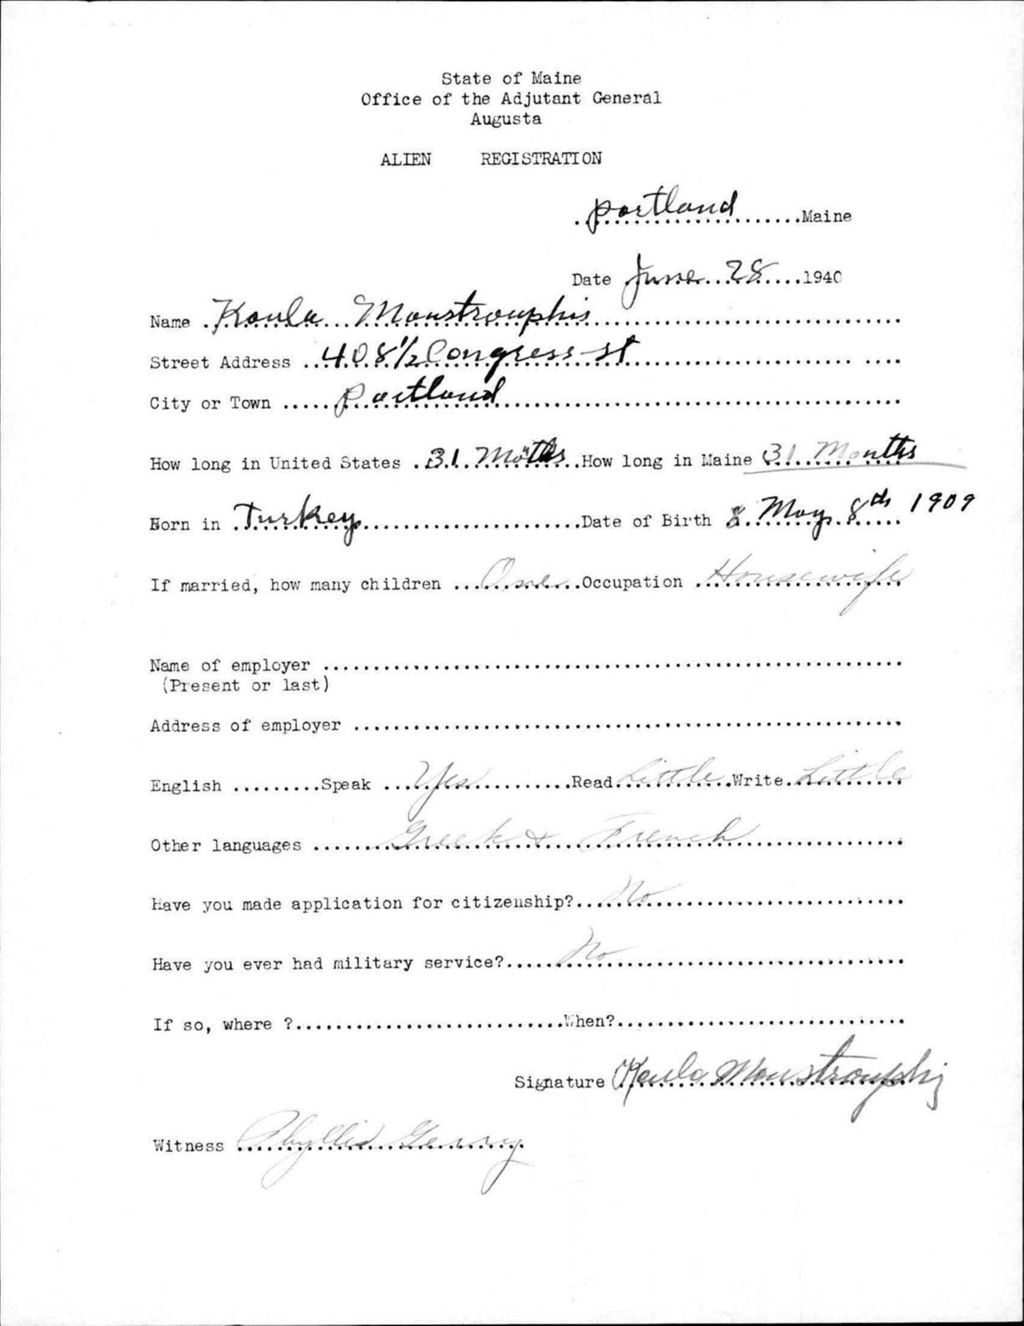 State of Maine
Office of the Adjutant General
Augusta
ALIEN REGISTRATION
Portland Maine
Date June 28 1940
Name Koula Moustrouphis
Street Address 408 1/2 Congress St
City or Town Portland
How long in United States 31 Moths How long in Maine 31 Months
Born in Turkey Date of Birth May 8th 1909
If married, how many children One Occupation Housewife
Name of employer
(Present or last)
Address of employer
English Speak Yes Read Little Write Little
Other languages Greek & French
Have you made application for citizenship? No
Have you ever had military service? No
If so, where ? When?
Signature Koula Moustrouphis
Witness Phyllis Gerry